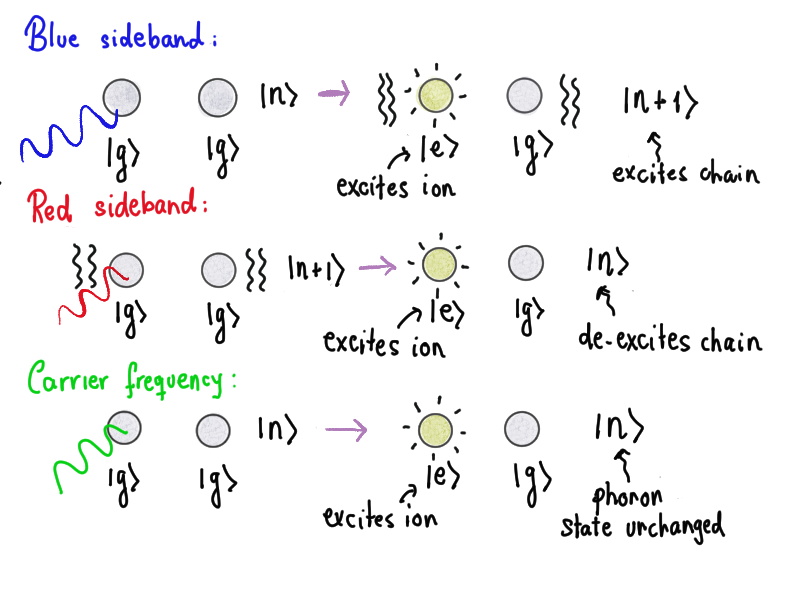 Blue sideband:
|n⟩ |n+1⟩
|g⟩ |g⟩ |e⟩ |g⟩
excites ion excites chain
Red sideband:
|n+1⟩ |n⟩
|g⟩ |g⟩ |e⟩ |g⟩
excites ion de-excites chain
Carrier frequency:
|n⟩ |n⟩
|g⟩ |g⟩ |e⟩ |g⟩
excites ion phonon
state unchanged